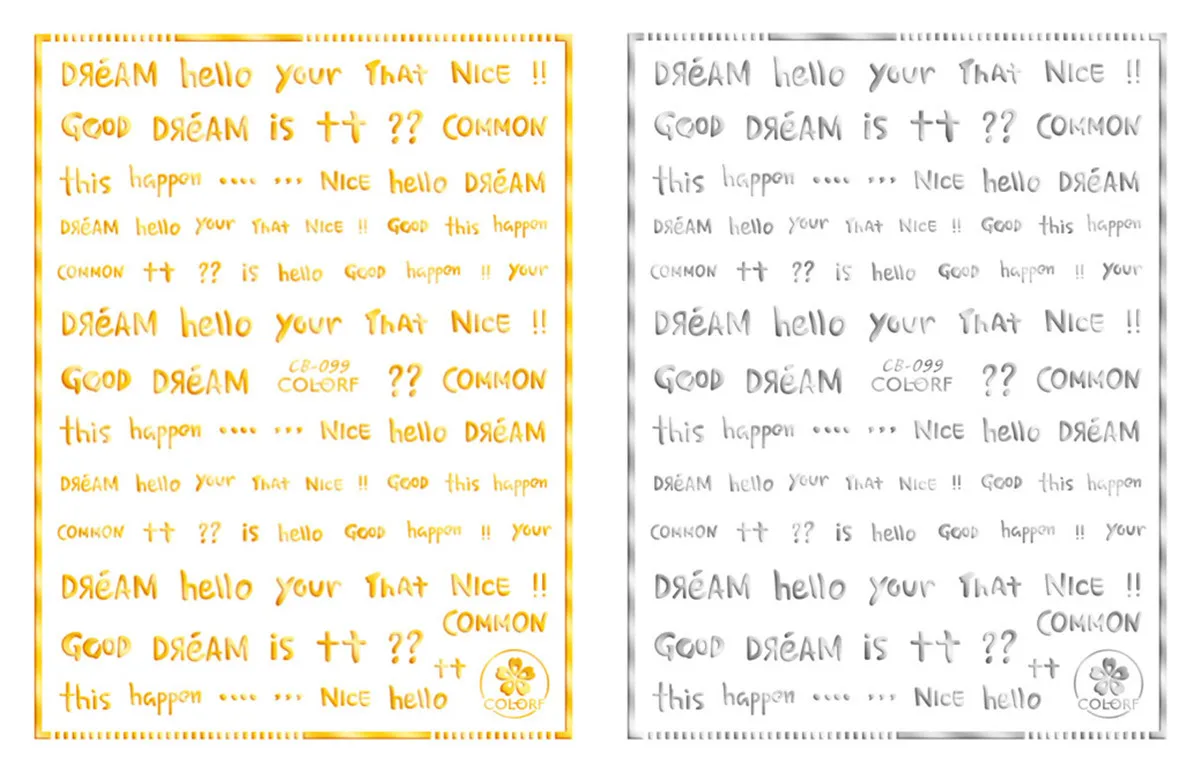 DЯéAM hello your ThAt NICE !!
GOOD DЯéAM is †† ?? COMMON
this happen .... ,,, NICE hello DЯéAM
DЯéAM hello your ThAt NICE !! GOOD this happen
COMMON †† ?? is hello GOOD happen !! your
DЯéAM hello your ThAt NICE !!
CB-099
GOOD DЯéAM COLORF ?? COMMON
this happen .... ,,, NICE hello DЯéAM
DЯéAM hello your ThAt NICE !! GOOD this happen
COMMON †† ?? is hello GOOD happen !! your
DЯéAM hello your ThAt NICE !!
COMMON
GOOD DЯéAM is †† ??
††
this happen .... ,,, NICE hello COLORF
DЯéAM hello your ThAt NICE !!
GOOD DЯéAM is †† ?? COMMON
this happen .... ,,, NICE hello DЯéAM
DЯéAM hello your ThAt NICE !! GOOD this happen
COMMON †† ?? is hello GOOD happen !! your
DЯéAM hello your ThAt NICE !!
CB-099
GOOD DЯéAM COLORF ?? COMMON
this happen .... ,,, NICE hello DЯéAM
DЯéAM hello your ThAt NICE !! GOOD this happen
COMMON †† ?? is hello GOOD happen !! your
DЯéAM hello your ThAt NICE !!
COMMON
GOOD DЯéAM is †† ??
††
this happen .... ,,, NICE hello COLORF